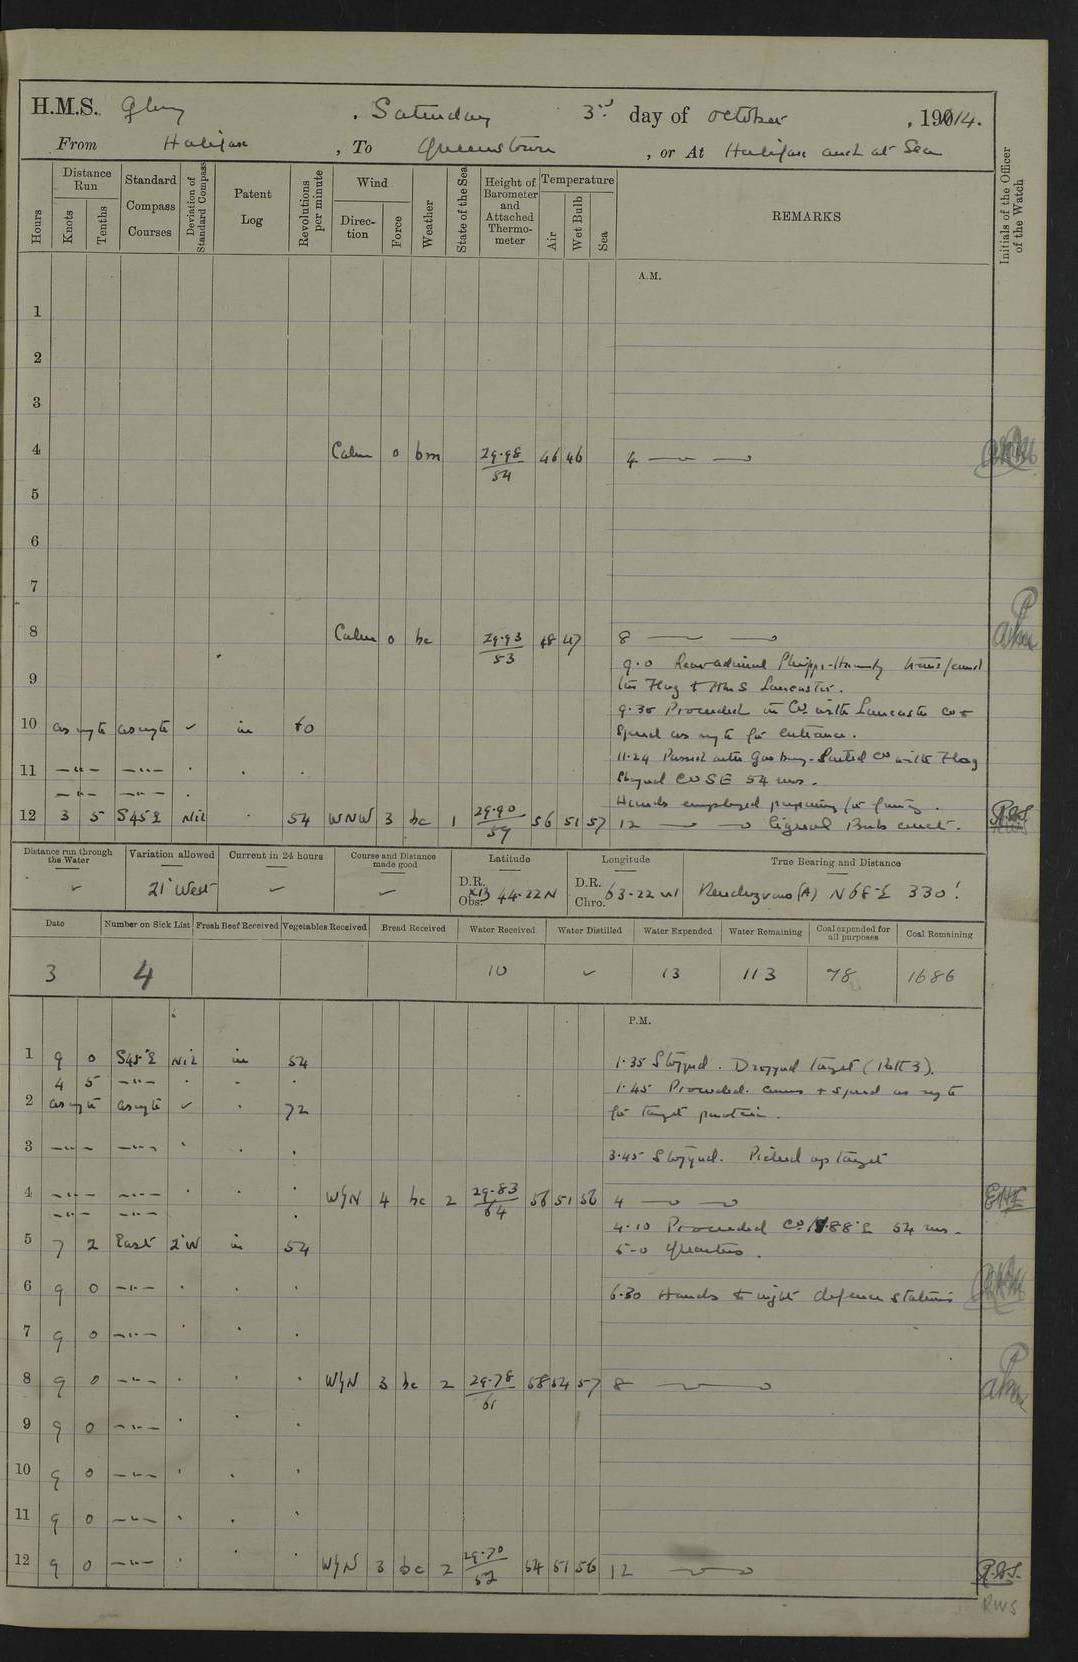 H.M.S. Glory, Saturday 3rd day of October, 1914.
From Halifax, To Queenstown, or At Halifax and at Sea
Hours
Distance Run
Knots
Tenths
Standard Compass Courses
Deviation of Standard Compass
Patent Log
Revolutions per minute
Wind
Direction
Force
Weather
State of the Sea
Height of Barometer and Attached Thermometer
Temperature
Air
Wet Bulb
Sea
REMARKS
Initials of the Officer of the Watch
A.M.
1
2
3
4 Calm 0 bm 29.98 54 46 46 4
5
6
7
8 Calm 0 bc 29.93 53 48 47 8
9.0 Rear-admiral Phipps-Hornby transferred
9 his Flag to HMS Lancaster.
9.30 Proceeded in Co with Lancaster Co &
10 as reqte as reqte ✓ in 60 Speed as reqte for entrance.
11.24 Passed outer Gas buoy. Parted Co with Flag
11 —"— —"— Shaped Co SE 54 revs.
—"— —"— Hands employed preparing for firing.
12 3 5 S45°E Nil 54 WNW 3 bc 1 29.90 59 56 51 57 12
Distance run through the Water
Variation allowed
Current in 24 hours
Course and Distance made good
Latitude
Longitude
True Bearing and Distance
✓ 21° West ✓ ✓ D.R. Obs. 44-22 N D.R. Chro. 63-22 W Rendezvous (A) N68°E 330'
Date
Number on Sick List
Fresh Beef Received
Vegetables Received
Bread Received
Water Received
Water Distilled
Water Expended
Water Remaining
Coal expended for all purposes
Coal Remaining
3 4 10 ✓ 13 113 78 1686
P.M.
1 9 0 S45°E Nil in 54 1.35 Stopped. Dropped target (Patt 3).
4 5 —"— 1.45 Proceeded. Courses & speed as reqte
2 as reqte as reqte ✓ 72 for target practice.
3 —"— —"— 3.45 Stopped. Picked up target
4 —"— —"— WyN 4 bc 2 29.83 64 56 51 56 4
—"— —"— 4.10 Proceeded Co N88°E 54 revs.
5 7 2 East 2°W in 54 5-0 Quarters.
6 9 0 —"— 6.30 Hands to night defence stations
7 9 0 —"—
8 9 0 —"— WyN 3 bc 2 29.78 61 58 54 57 8
9 9 0 —"—
10 9 0 —"—
11 9 0 —"—
12 9 0 —"— WyN 3 bc 2 29.70 52 54 51 56 12
RWS